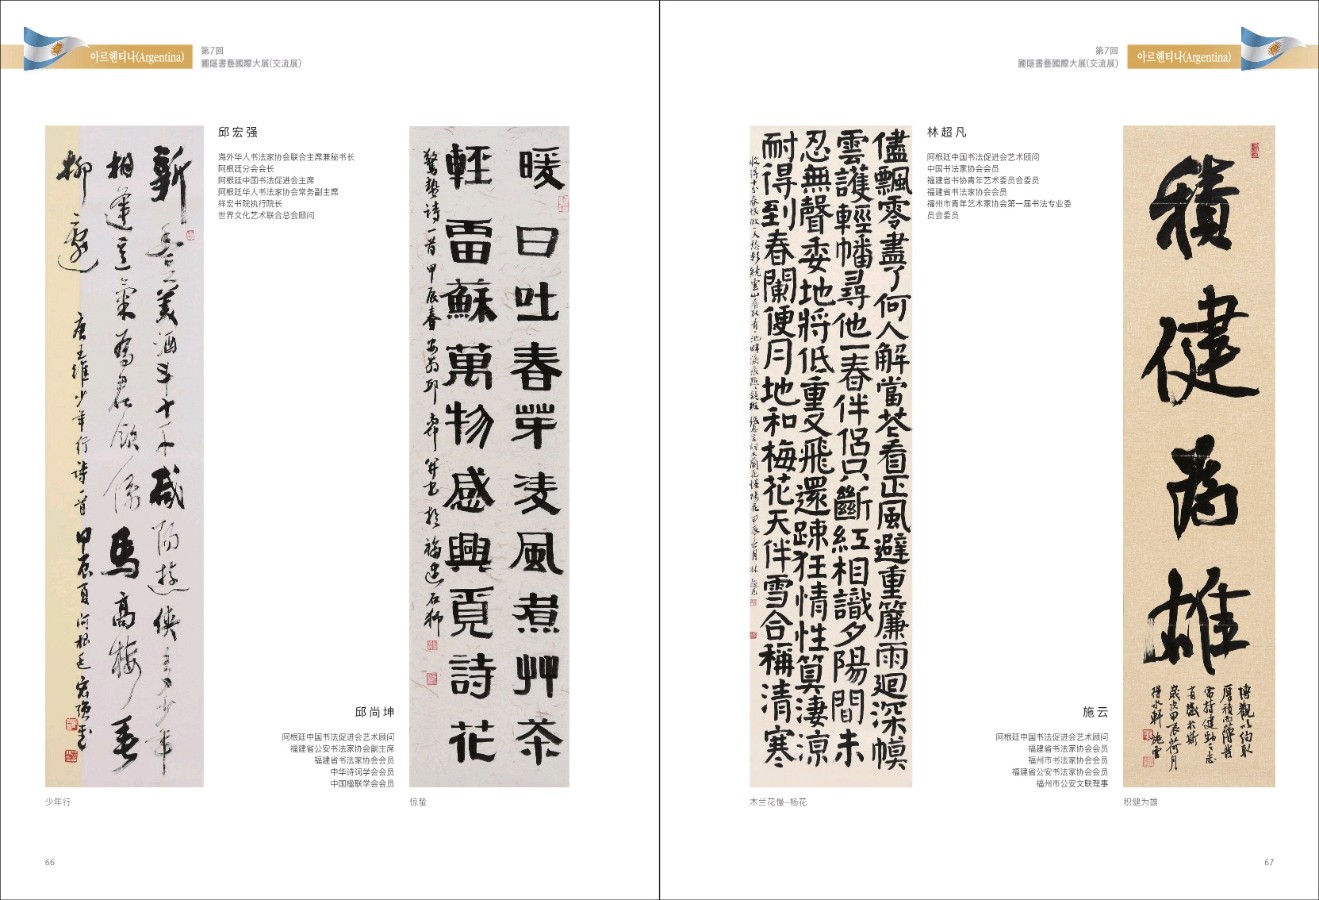 아르헨티나(Argentina)
第7回
圃隱書藝國際大展(交流展)
邱宏强
海外华人书法家协会联合主席兼秘书长
阿根廷分会会长
阿根廷中国书法促进会主席
阿根廷华人书法家协会常务副主席
祥宏书院执行院长
世界文化艺术联合总会顾问
新豐美酒斗十千咸陽遊俠多少年
相逢意氣為君飲係馬高樓垂
柳邊
唐王維少年行詩一首
甲辰夏阿根廷宏强書
少年行
暖日吐春芽凌風煮艸茶
輕雷蘇萬物感興覓詩花
驚蟄詩一首甲辰春
惊蛰
邱尚坤
阿根廷中国书法促进会艺术顾问
福建省公安书法家协会副主席
福建省书法家协会会员
中华诗词学会会员
中国楹联学会会员
66
第7回
圃隱書藝國際大展(交流展)
아르헨티나(Argentina)
儘飄零盡了何人解當花看正風避重簾雨迴深幙
雲護輕幡尋他一春伴侶只斷紅相識夕陽間未
忍無聲委地將低重又飛還踈狂情性算淒涼
耐得到春闌便月地和梅花天伴雪合稱清寒
木兰花慢–杨花
林超凡
阿根廷中国书法促进会艺术顾问
中国书法家协会会员
福建省书协青年艺术委员会委员
福建省书法家协会会员
福州市青年艺术家协会第一届书法专业委
员会委员
積健為雄
博觀以約取
厚積而薄發
常持健勁之志
歲次甲辰荷月
积健为雄
施云
阿根廷中国书法促进会艺术顾问
福建省书法家协会会员
福州市书法家协会会员
福建省公安书法家协会会员
福州市公安文联理事
67